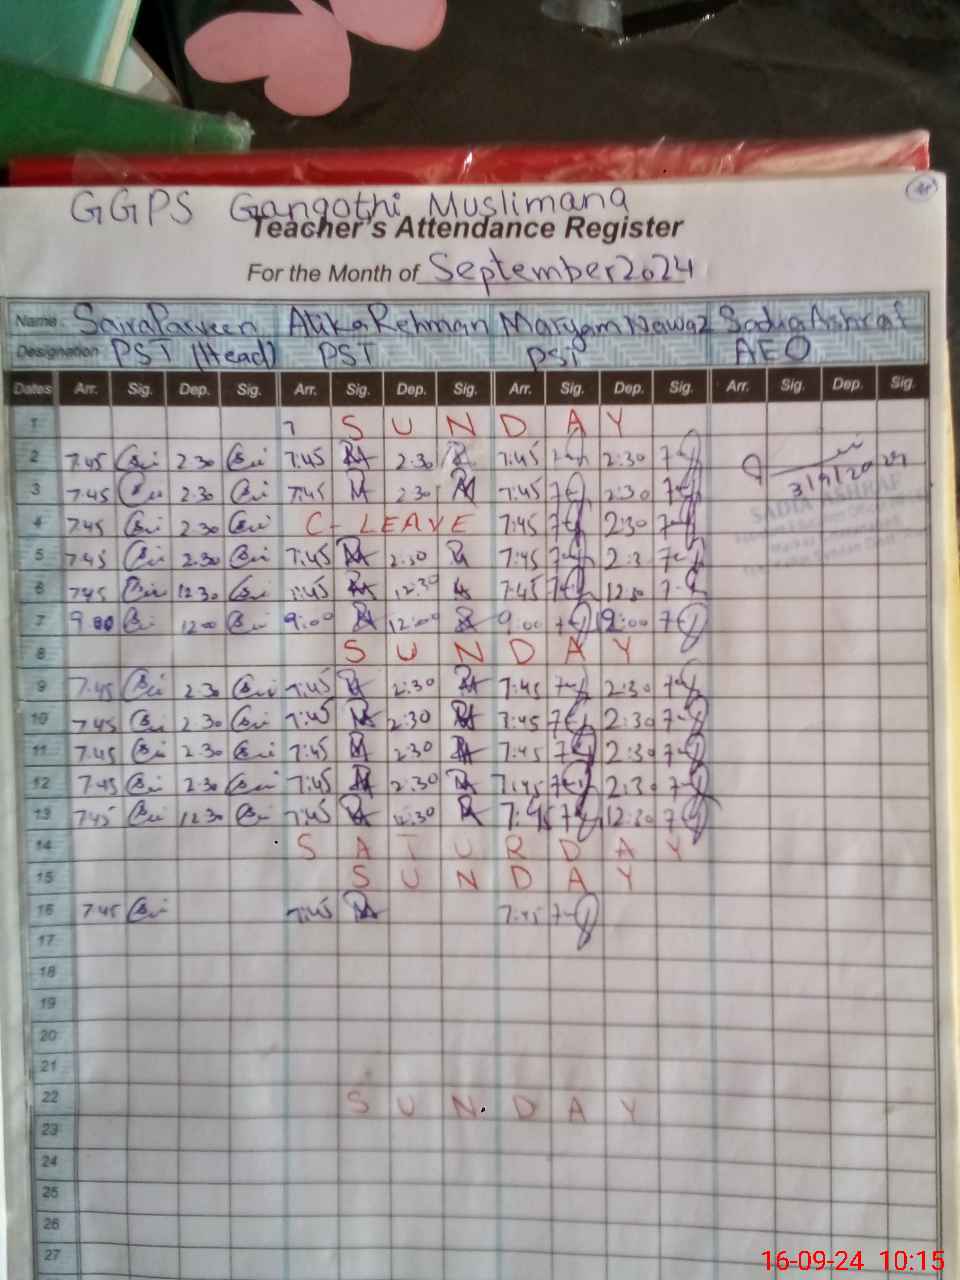 GGPS Gangothi Muslimana
Teacher's Attendance Register
For the Month of September 2024
Name Saira Parveen Atika Rehman Maryam Nawaz Sadia Ashraf
Designation PST (Head) PST PST AEO
Dates Arr. Sig. Dep. Sig. Arr. Sig. Dep. Sig. Arr. Sig. Dep. Sig. Arr. Sig. Dep. Sig.
1 S U N D A Y
2 7:45 2:30 7:45 2:30 7:45 2:30
3 7:45 2:30 7:45 2:30 7:45 2:30 3/9/2024
4 7:45 2:30 C-LEAVE 7:45 2:30 SADIA ASHRAF
5 7:45 2:30 7:45 2:30 7:45 2:3
6 7:45 12:30 7:45 12:30 7:45
7 9:00 12:00 9:00 12:00 9:00 12:00
8 S U N D A Y
9 7:45 2:30 7:45 2:30 7:45 2:30
10 7:45 2:30 7:45 2:30 7:45 2:30
11 7:45 2:30 7:45 2:30 7:45 2:30
12 7:45 2:30 7:45 2:30 7:45 2:30
13 7:45 12:30 7:45 12:30 7:45 12:30
14 S A T U R D A Y
15 S U N D A Y
16 7:45 7:45 7:45
17
18
19
20
21
22 S U N D A Y
23
24
25
26
27
16-09-24 10:15